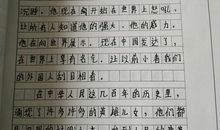 沉睡。他现在每开始在世界上怒吼，
让所有人知道他的强大，他的威力。
他在向世界展示，现在中国发达了，
在世界上享有名气，让以前小看我们
的外国人刮目相看。
在中华人民这几百年的历史里，
涌现了许许多多的英雄儿女，他们都